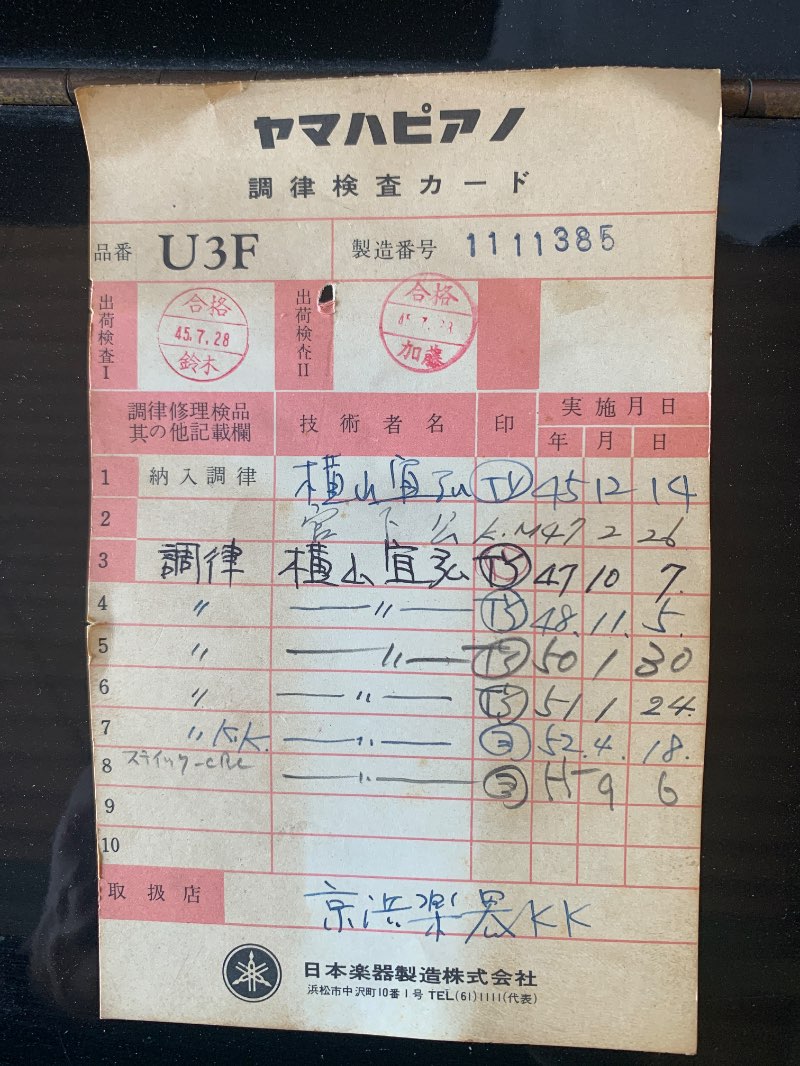 ヤマハピアノ
調律検査カード
品番 U3F 製造番号 1111385
出荷検査I 合格 45.7.28 鈴木 出荷検査II 合格 45.7.28 加藤
調律修理検品其の他記載欄 技術者名 印 実施月日
年 月 日
1 納入調律 横山宜弘 TY 45 12 14
2 宮下公 K.M 47 2 26
3 調律 横山宜弘 47 10 7.
4 〃 〃 48. 11. 5.
5 〃 〃 50 1 30
6 〃 〃 51 1 24.
7 〃 K.K. 〃 52. 4. 18.
8 スティック 〃 9 6
9
10
取扱店 京浜楽器KK
日本楽器製造株式会社
浜松市中沢町10番1号 TEL(61)1111(代表)